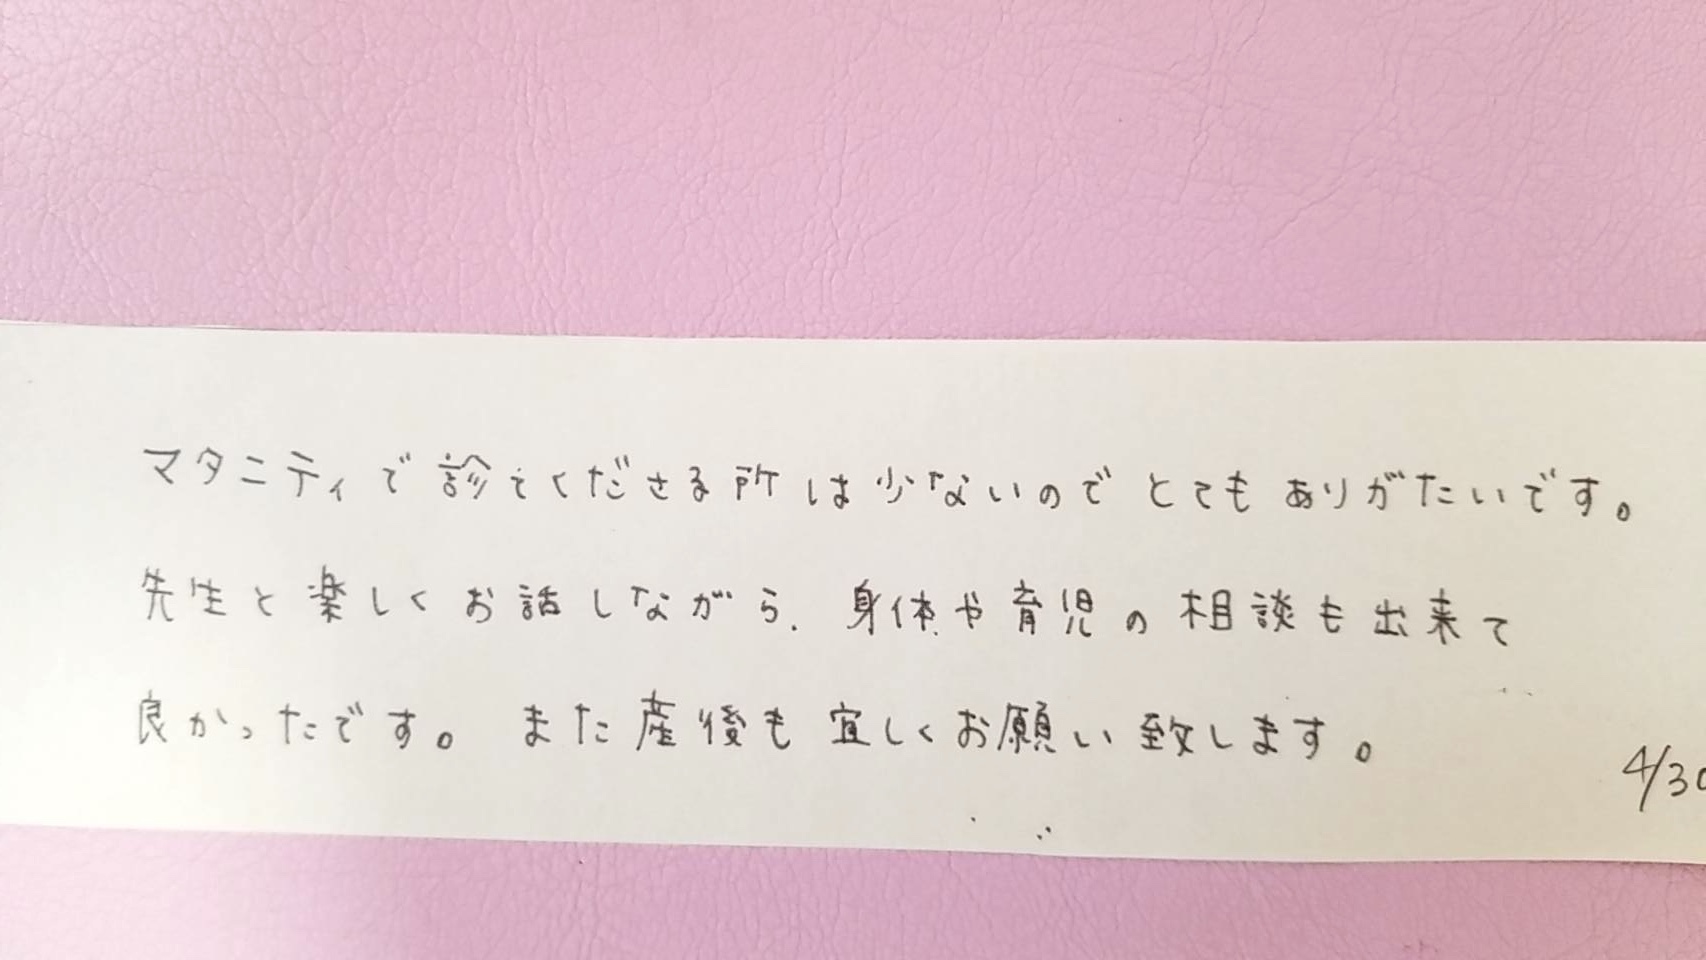 マタニティで診てくださる所は少ないのでとてもありがたいです。
先生と楽しくお話しながら、身体や育児の相談も出来て
良かったです。また産後も宜しくお願い致します。
4/30